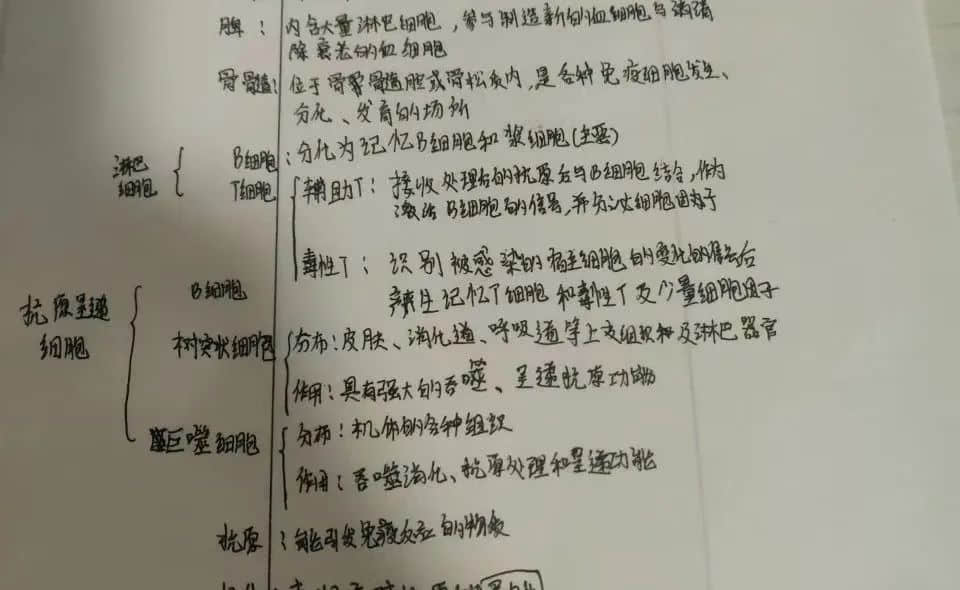 脾：内含大量淋巴细胞，参与制造新的血细胞与清
除衰老的血细胞
骨髓：位于骨髓腔或骨松质内，是各种免疫细胞发生、
分化、发育的场所
淋巴细胞
B细胞：分化为记忆B细胞和浆细胞(主要)
T细胞
辅助T：接收处理后的抗原后与B细胞结合，作为
激活B细胞的信号，并分泌细胞因子
毒性T：识别被感染的宿主细胞的变化的信号后
产生记忆T细胞和毒性T及少量细胞因子
抗原呈递细胞
B细胞
树突状细胞
分布：皮肤、消化道、呼吸道等上皮组织和及淋巴器官
作用：具有强大的吞噬、呈递抗原功能
巨噬细胞
分布：机体的各种组织
作用：吞噬消化、抗原处理和呈递功能
抗原：能引发免疫反应的物质